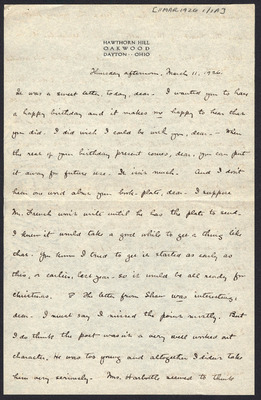 [11 MAR 1926 1/1A]
HAWTHORN HILL
OAKWOOD
DAYTON · OHIO
Thursday afternoon, March 11, 1926.
It was a sweet letter, today, dear. I wanted you to have
a happy birthday and it makes me happy to hear that
you did. I did wish I could be with you, dear. — When
the rest of your birthday present comes, dear, you can put
it away for future use. It isn't much. And I don't
hear one word about your book-plate, dear. I suppose
Mr. French won't write until he has the plate to send.
I knew it would take a good while to get a thing like
that. You know I tried to get it started as early as
this, or earlier, last year so it would be all ready for
Christmas. The letter from Shaw was interesting,
dear. I must say I missed the point mostly. But
I do think the poet wasn't a very well worked out
character. He was too young and altogether I didn't take
him very seriously. Mrs. seemed to think